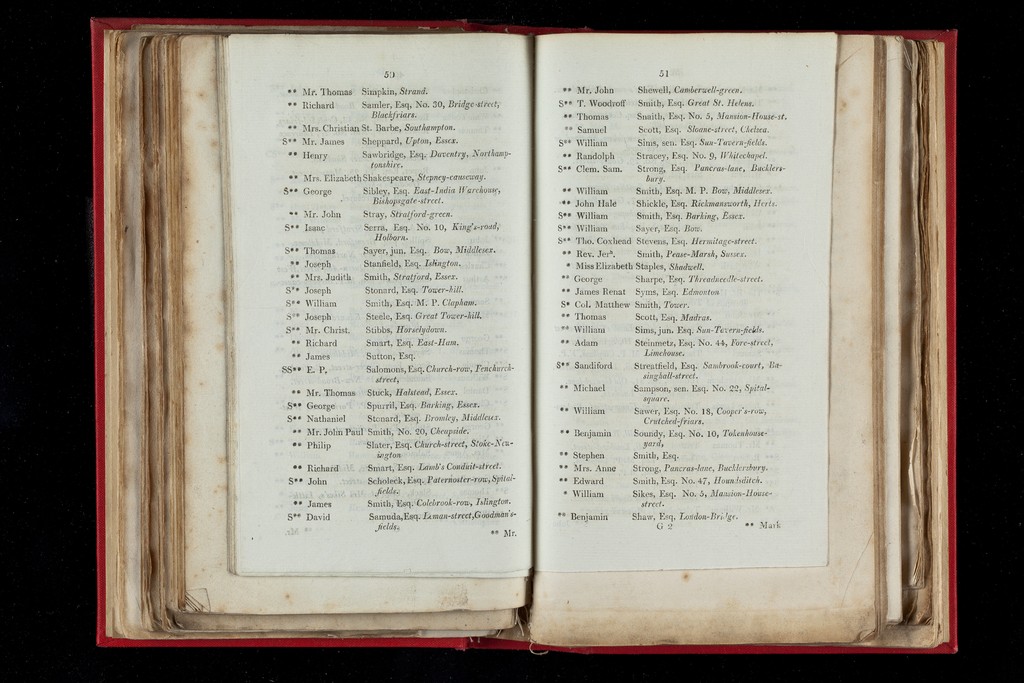 50
** Mr. Thomas Simpkin, Strand.
** Richard Samler, Esq. No. 30, Bridge-street,
Blackfriars.
** Mrs. Christian St. Barbe, Southampton.
S** Mr. James Sheppard, Upton, Essex.
** Henry Sawbridge, Esq. Daventry, Northamp-
tonshire.
** Mrs. Elizabeth Shakespeare, Stepney-causeway.
S** George Sibley, Esq. East-India Warehouse,
Bishopsgate-street.
** Mr. John Stray, Stratford-green.
S** Isaac Serra, Esq. No. 10, King's-road,
Holborn.
S** Thomas Sayer, jun. Esq. Bow, Middlesex.
** Joseph Stanfield, Esq. Islington.
** Mrs. Judith Smith, Stratford, Essex.
S** Joseph Stonard, Esq. Tower-hill.
S** William Smith, Esq. M. P. Clapham.
S** Joseph Steele, Esq. Great Tower-hill.
S** Mr. Christ. Stibbs, Horselydown.
** Richard Smart, Esq. East-Ham.
** James Sutton, Esq.
SS** E. P. Salomons, Esq. Church-row, Fenchurch-
street,
** Mr. Thomas Stuck, Halstead, Essex.
S** George Spurril, Esq. Barking, Essex.
S** Nathaniel Stonard, Esq. Bromley, Middlesex.
** Mr. John Paul Smith, No. 20, Cheapside.
** Philip Slater, Esq. Church-street, Stoke-New-
ington
** Richard Smart, Esq. Lamb's Conduit-street.
S** John Scholeck, Esq. Paternoster-row, Spital-
fields.
** James Smith, Esq. Colebrook-row, Islington.
S** David Samuda, Esq. Leman-street, Goodman's-
fields.
** Mr.
51
** Mr. John Shewell, Camberwell-green.
S** T. Woodroff Smith, Esq. Great St. Helens.
** Thomas Smith, Esq. No. 5, Mansion-House-st.
** Samuel Scott, Esq. Sloane-street, Chelsea.
S** William Sims, sen. Esq. Sun-Tavern-fields.
** Randolph Stracey, Esq. No. 9, Whitechapel.
S** Clem. Sam. Strong, Esq. Pancras-lane, Bucklers-
bury.
** William Smith, Esq. M. P. Bow, Middlesex.
** John Hale Shickle, Esq. Rickmansworth, Herts.
S** William Smith, Esq. Barking, Essex.
S** William Sayer, Esq. Bow.
S** Tho. Coxhead Stevens, Esq. Hermitage-street.
** Rev. Jerh. Smith, Pease-Marsh, Sussex.
* Miss Elizabeth Staples, Shadwell.
** George Sharpe, Esq. Threadneedle-street.
** James Renat Syms, Esq. Edmonton
S* Col. Matthew Smith, Tower.
** Thomas Scott, Esq. Madras.
** William Sims, jun. Esq. Sun-Tavern-fields.
** Adam Steinmetz, Esq. No. 44, Fore-street,
Limehouse.
S** Sandiford Streatfield, Esq. Sambrook-court, Ba-
singhall-street.
** Michael Sampson, sen. Esq. No. 22, Spital-
square.
** William Sawer, Esq. No. 18, Cooper's-row,
Crutched-friars.
** Benjamin Soundy, Esq. No. 10, Tokenhouse-
yard,
** Stephen Smith, Esq.
** Mrs. Anne Strong, Pancras-lane, Bucklersbury.
** Edward Smith, Esq. No. 47, Houndsditch.
* William Sikes, Esq. No. 5, Mansion-House-
street.
** Benjamin Shaw, Esq. London-Bridge.
G 2 ** Mark